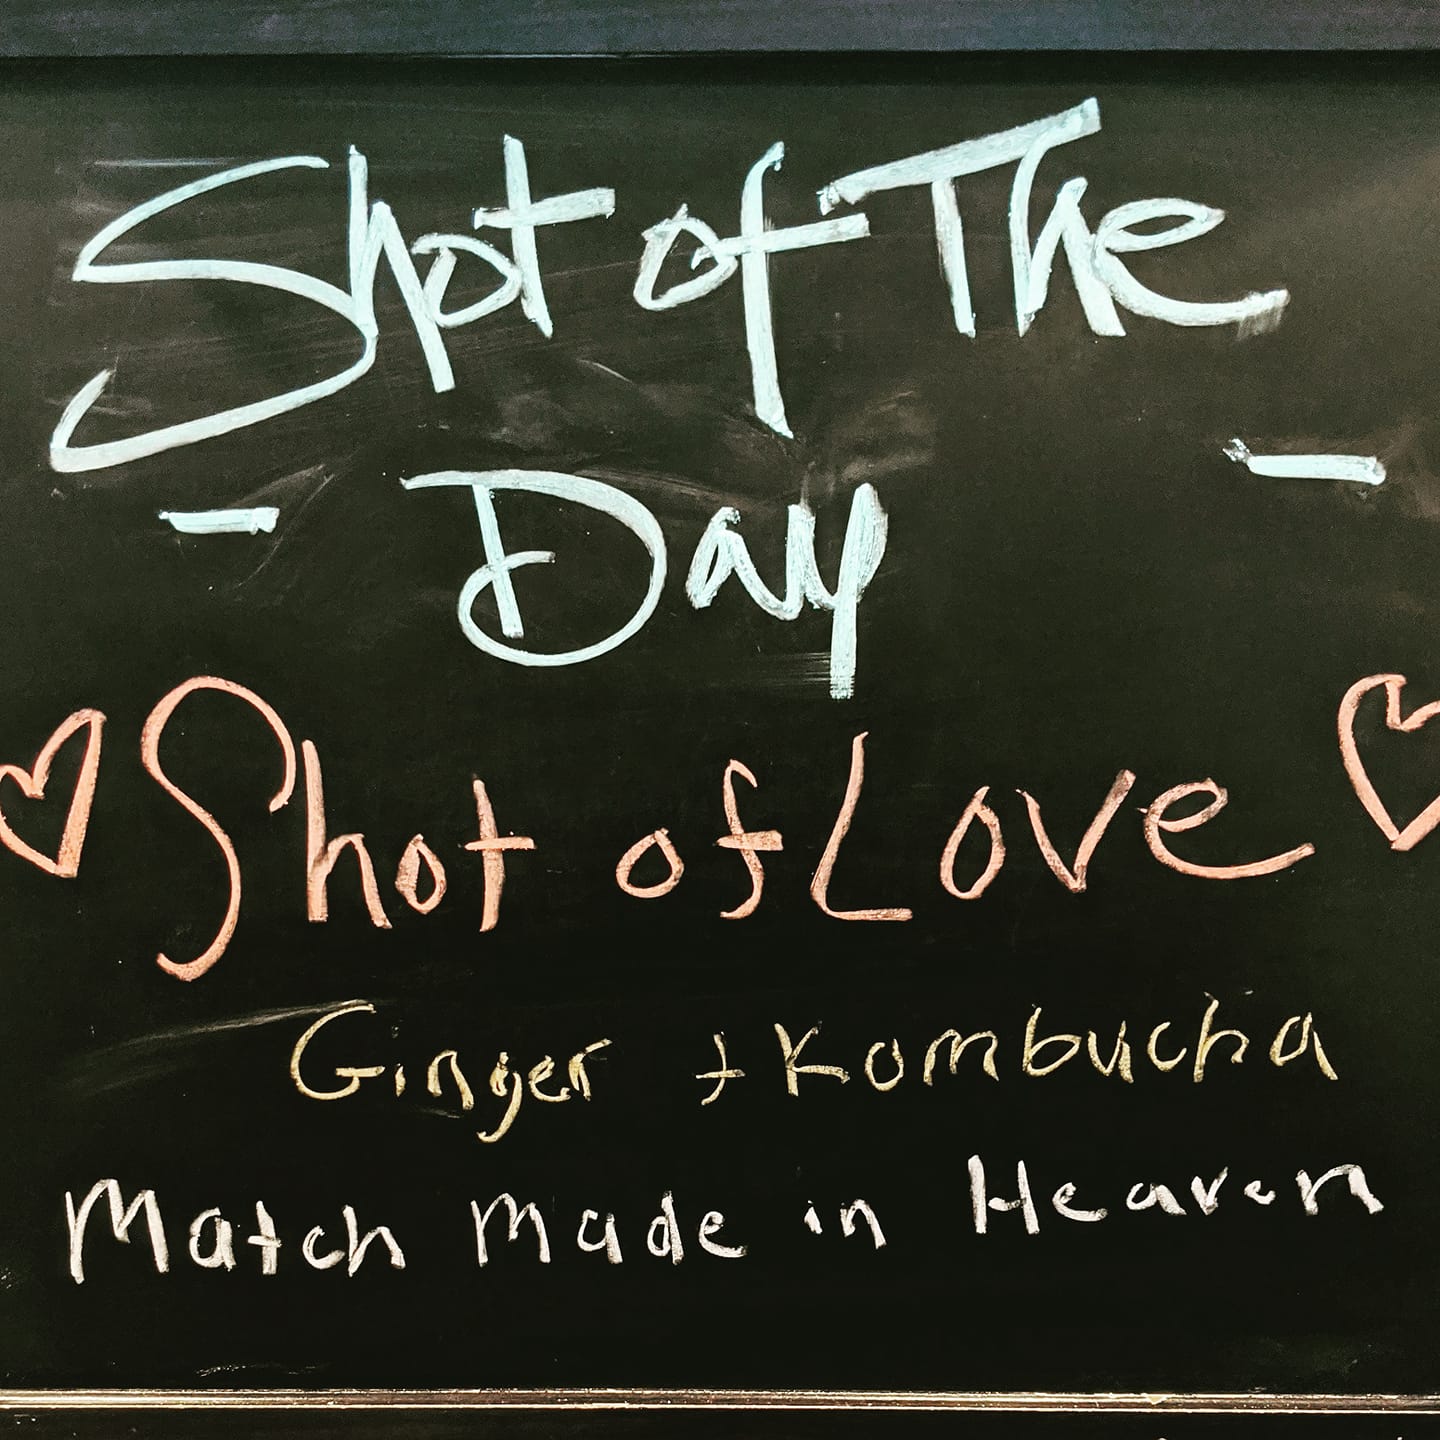 Shot of The
- Day -
Shot of Love
Ginger + Kombucha
Match Made in Heaven